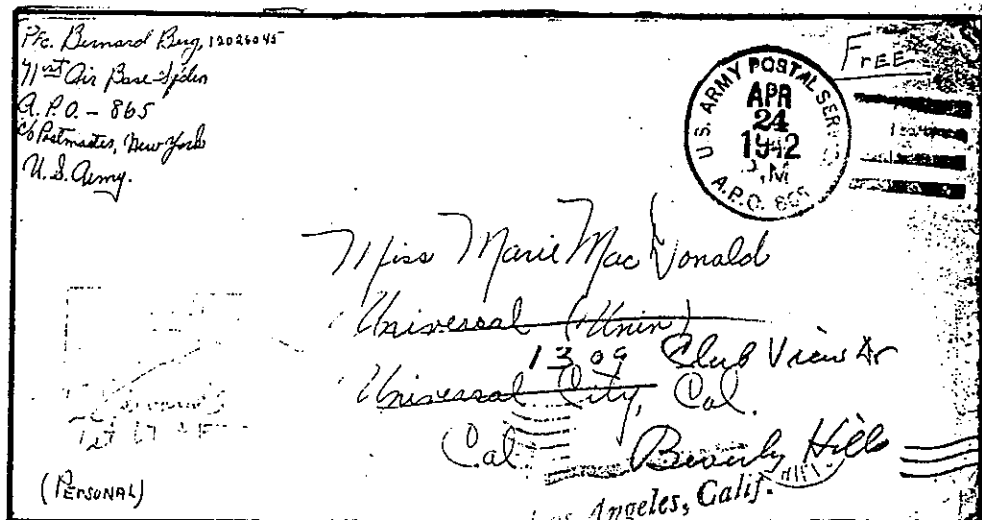 Pfc. Bernard Berg, 12026045
71st Air Base Sqdrn
A.P.O. - 865
c/o Postmaster, New York
U.S. Army.
FREE
U.S. ARMY POSTAL SER
APR
24
1942
P.M
A.P.O. 865
Miss Marie MacDonald
Universal (Univ)
1309 Club View Dr
Universal City, Cal.
Cal. Beverly Hills
Los Angeles, Calif.
(PERSONAL)